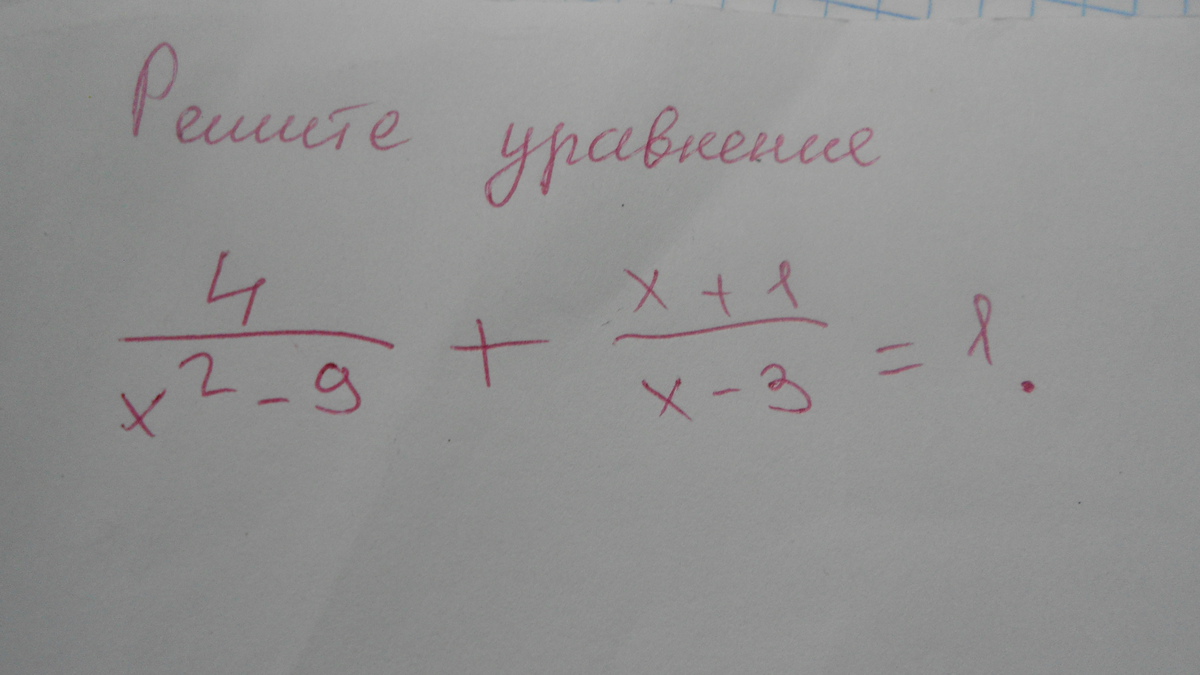 Решите уравнение
4/(x² - 9) + (x + 1)/(x - 3) = 1.